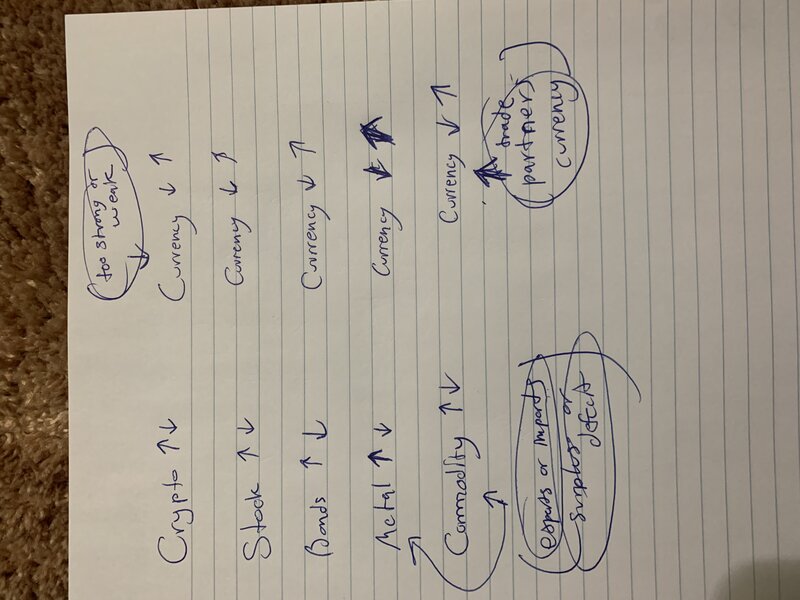 too strong or
weak
↓
Crypto ↑↓ Currency ↓ ↑
Stock ↑↓ Currency ↓ ↑
Bonds ↑↓ Currency ↓ ↑
Metal ↑↓ Currency ↓ ↑
Commodity ↑↓ Currency ↓ ↑
exports or imports
surplus or
defecit
trade
partners
currency